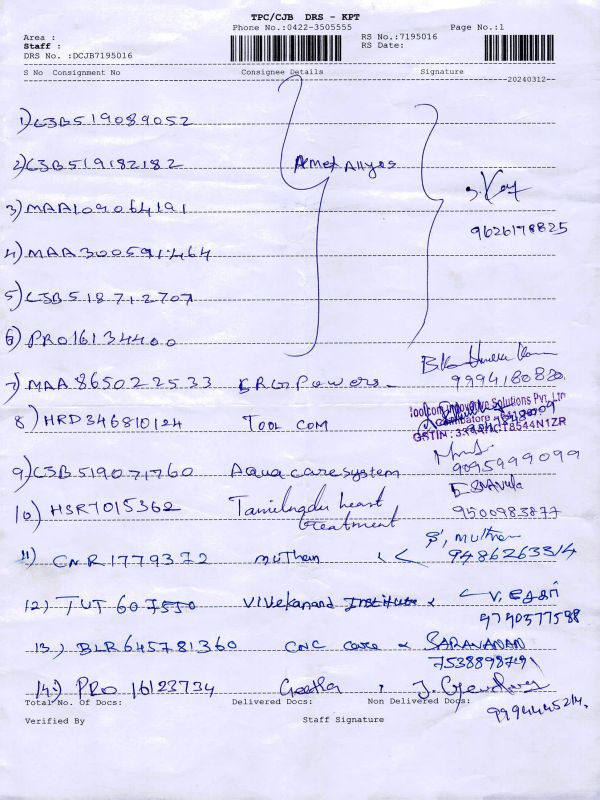 TPC/CJB DRS - KPT
Phone No.:0422-3505555 Page No.:1
Area : RS No.:7195016
Staff : RS Date:
DRS No. :DCJB7195016
S No Consignment No Consignee Details Signature
20240312
1) CJB519089052
2) CJB519182182
3) MAA109064191
9626178825
4) MAA300591464
5) CJB518712707
6) PRO16134400
7) MAA865022533 Powers
9994160820
8) HRD346810124 TOOLCOM
Toolcom Innovative Solutions Pvt. Ltd
Coimbatore
9) CJB519071760 Aqua care system
9095999099
10) HSR7015362 Tamilnadu heart treatment
9500983877
11) CNR1779372 muthan S, muthan
9486263314
12) TUT607550 Vivekanand Institute
9790377588
13) BLR645781360 CNC care SARAVANAN
14) PRO 16123734 Geetha
9994445214
Total No. Of Docs: Delivered Docs: Non Delivered Docs:
Verified By Staff Signature